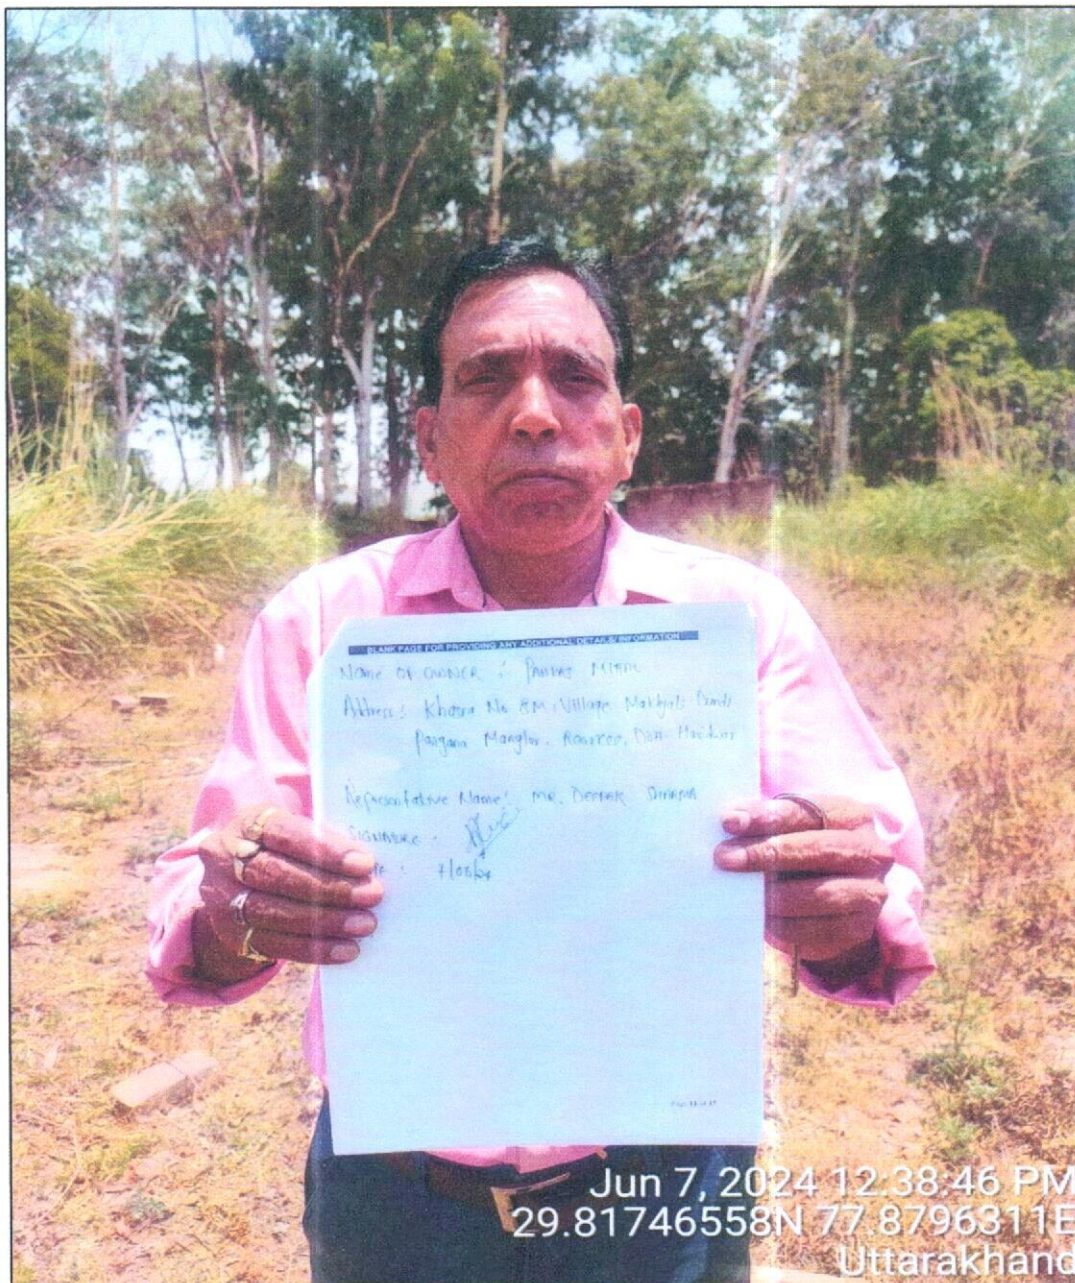 BLANK PAGE FOR PROVIDING ANY ADDITIONAL DETAILS/ INFORMATION
NAME OF OWNER : PANKAJ
Address : Khasra No 8M, Village
Pargana Manglor, Roorkee, Distt- Haridwar
Representative Name : MR. DEEPAK SHARMA
SIGNATURE -
Jun 7, 2024 12:38:46 PM
29.81746558N 77.8796311E
Uttarakhand